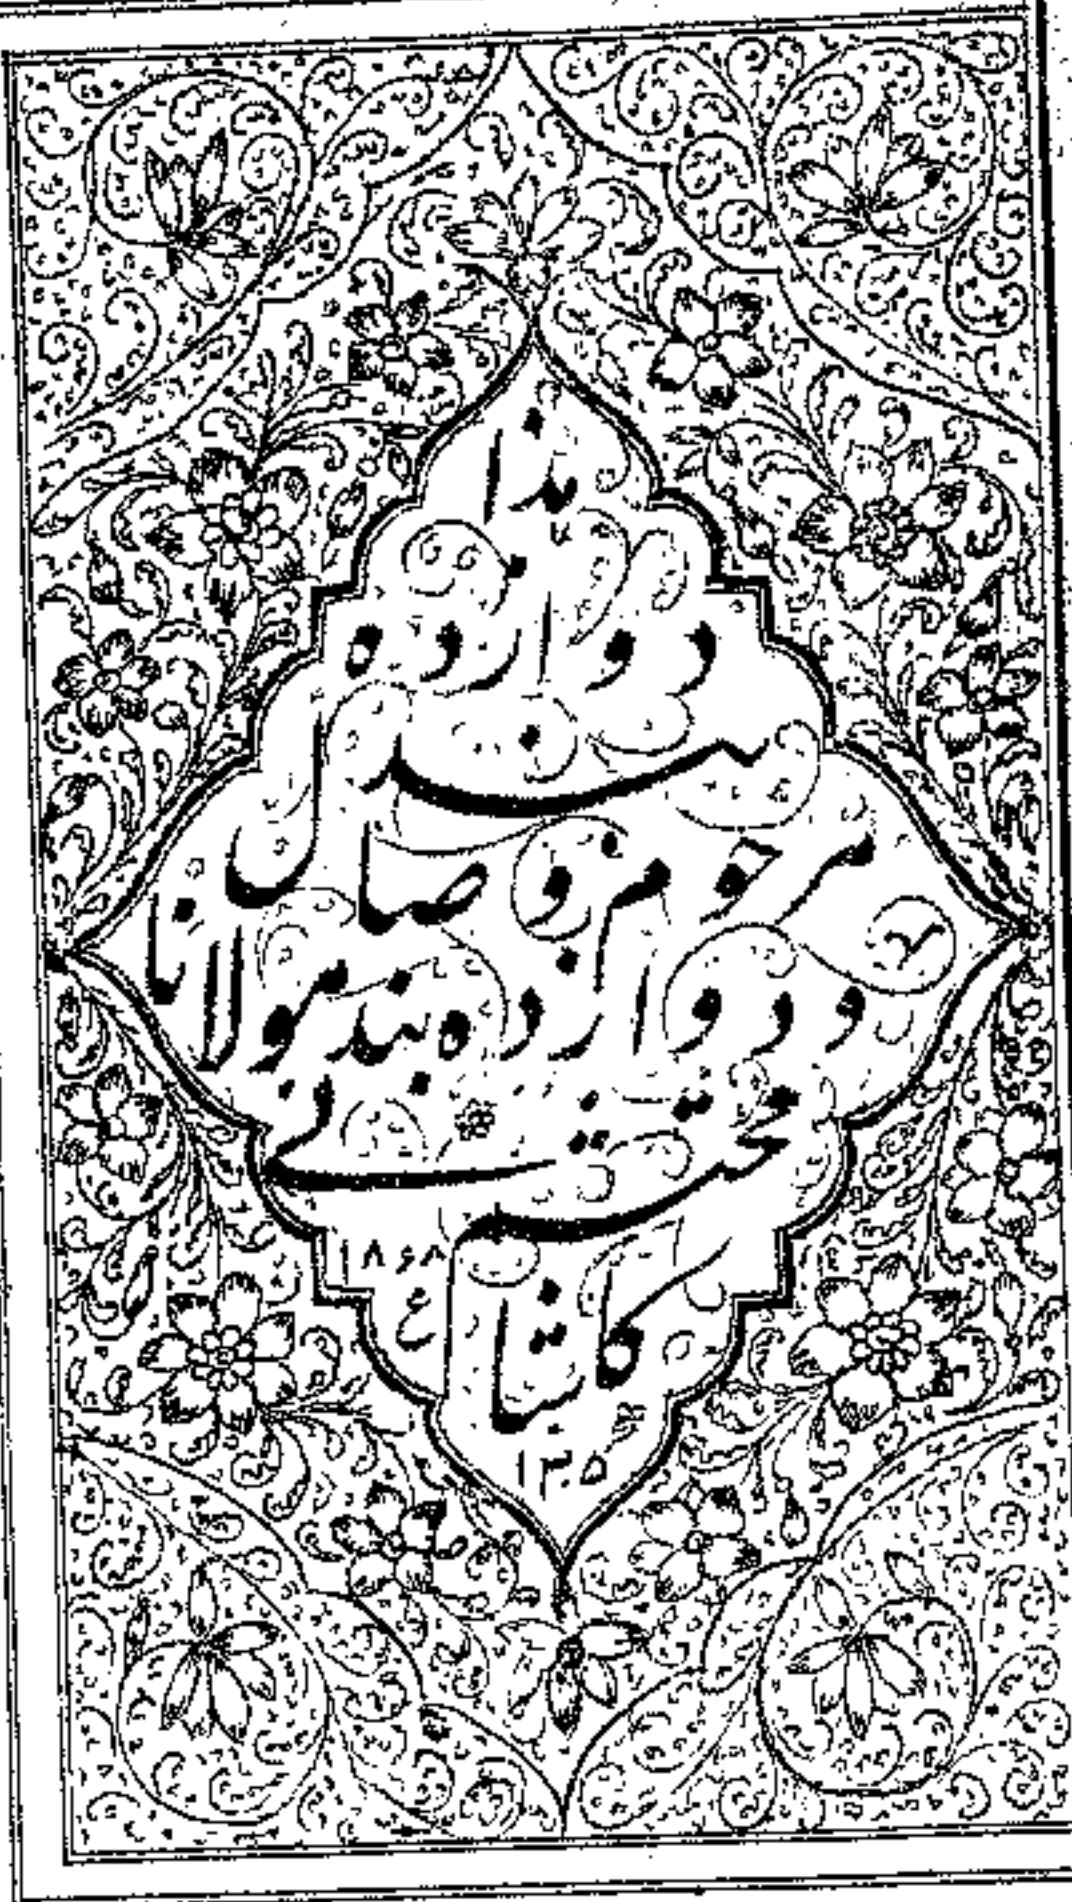 هذا
دوازده
بند
مرحوم میرزا وصال
و دوازده بند مولانا
محتشم
کاشانی
۱۳۰۵